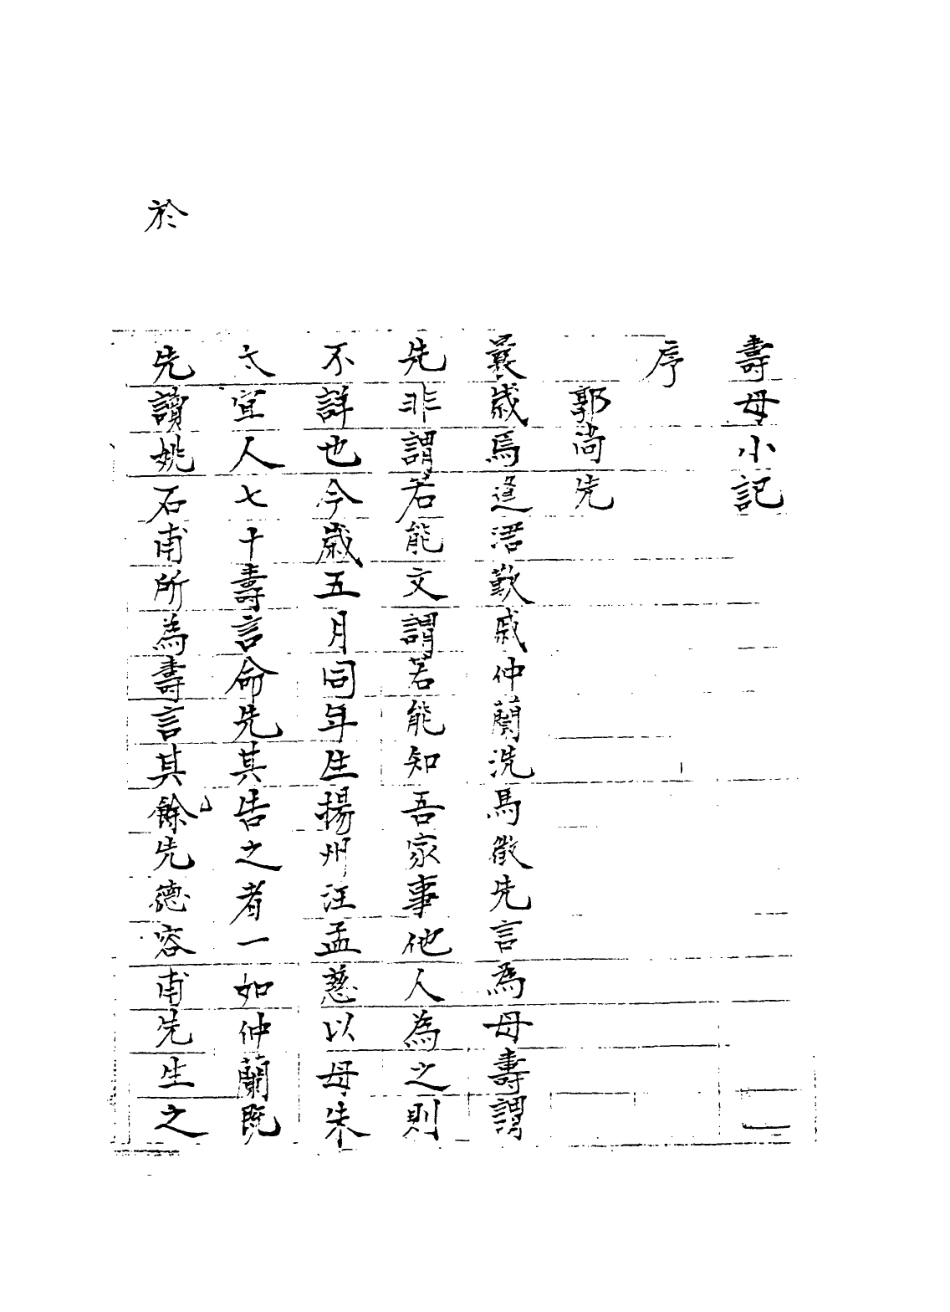 壽母小記
序
郭尚先
曩歲焉逢涒歎戚仲蘭洗馬徵先言為母壽謂
先非謂若能文謂若能知吾家事他人為之則
不詳也今歲五月同年生揚州汪孟慈以母朱
太宜人七十壽言命先其告之者一如仲蘭既
先讀姚石甫所為壽言其餘先德容甫先生之
於